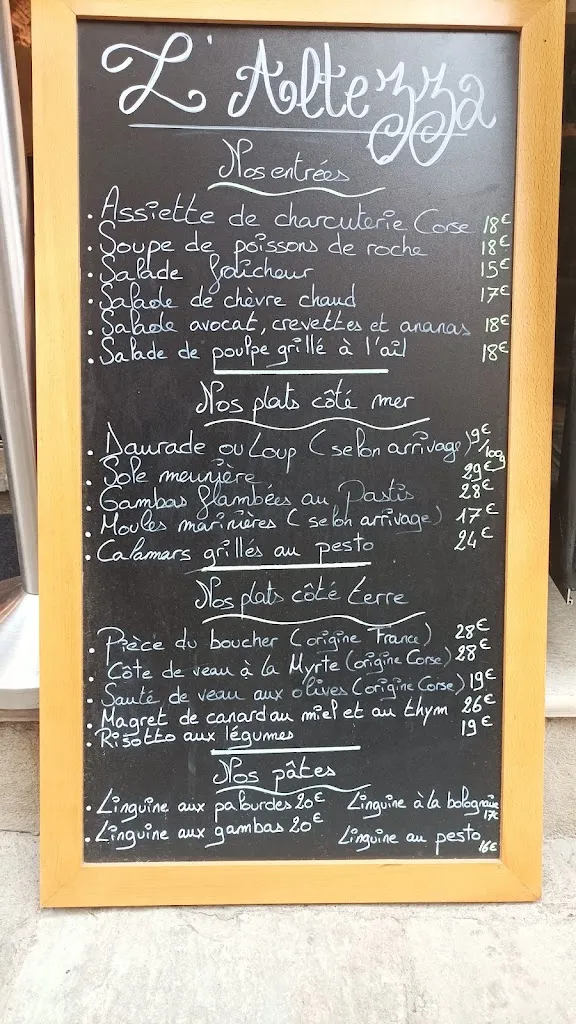 L'Altezza
Nos entrées
. Assiette de charcuterie Corse 18€
. Soupe de poissons de roche 18€
. Salade fraîcheur 15€
. Salade de chèvre chaud 17€
. Salade avocat, crevettes et ananas 18€
. Salade de poulpe grillé à l'ail 18€
Nos plats côté mer
. Daurade ou Loup (selon arrivage) 9€/100g
. Sole meunière 29€
. Gambas flambées au Pastis 28€
. Moules marinières (selon arrivage) 17€
. Calamars grillés au pesto 24€
Nos plats côté terre
. Pièce du boucher (origine France) 28€
. Côte de veau à la Myrte (origine Corse) 28€
. Sauté de veau aux olives (origine Corse) 19€
. Magret de canard au miel et au thym 26€
. Risotto aux légumes 19€
Nos pâtes
. Linguine aux palourdes 20€ Linguine à la bolognaise 17€
. Linguine aux gambas 20€ Linguine au pesto 16€